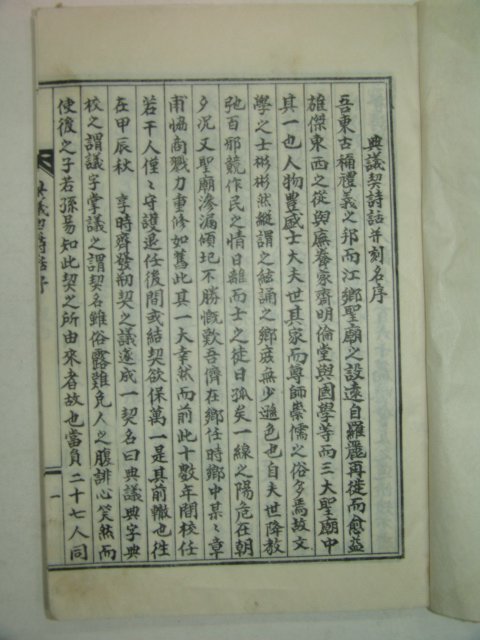 典議契詩話并刻名序
吾東古稱禮義之邦而江鄉聖廟之設遠自羅麗再徙而愈益
雄傑東西之從與廡養家齋明倫堂與國學等而三大聖廟中
其一也人物豊盛士大夫世其家而尊師崇儒之俗多焉故文
學之士彬彬然縱謂之絃誦之鄉庶無少遜色也自夫世降教
弛百邪競作民之情日離而士之徒日孤矣一線之陽危在朝
夕況又聖廟滲漏傾圮不勝慨歎吾儕在鄉任時鄉中某〻章
甫恊商戮力重修如舊此其一大幸然而前此十數年間校任
若干人僅〻守護退任後間或結契欲保萬一是其前轍也徃
在甲辰秋 享時齊發剏契之議遂成一契名曰典議典字典
校之謂議字掌議之謂契名雖俗露難免人之腹誹心笑然而
使後之子若孫易知此契之所由來者故也當員二十七人同
典議契詩話序
一